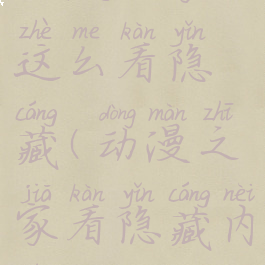 zhè me kàn yǐn
这么看隐
cáng dòng màn zhī
藏(动漫之
jiā kàn yǐn cáng nèi
家看隐藏内